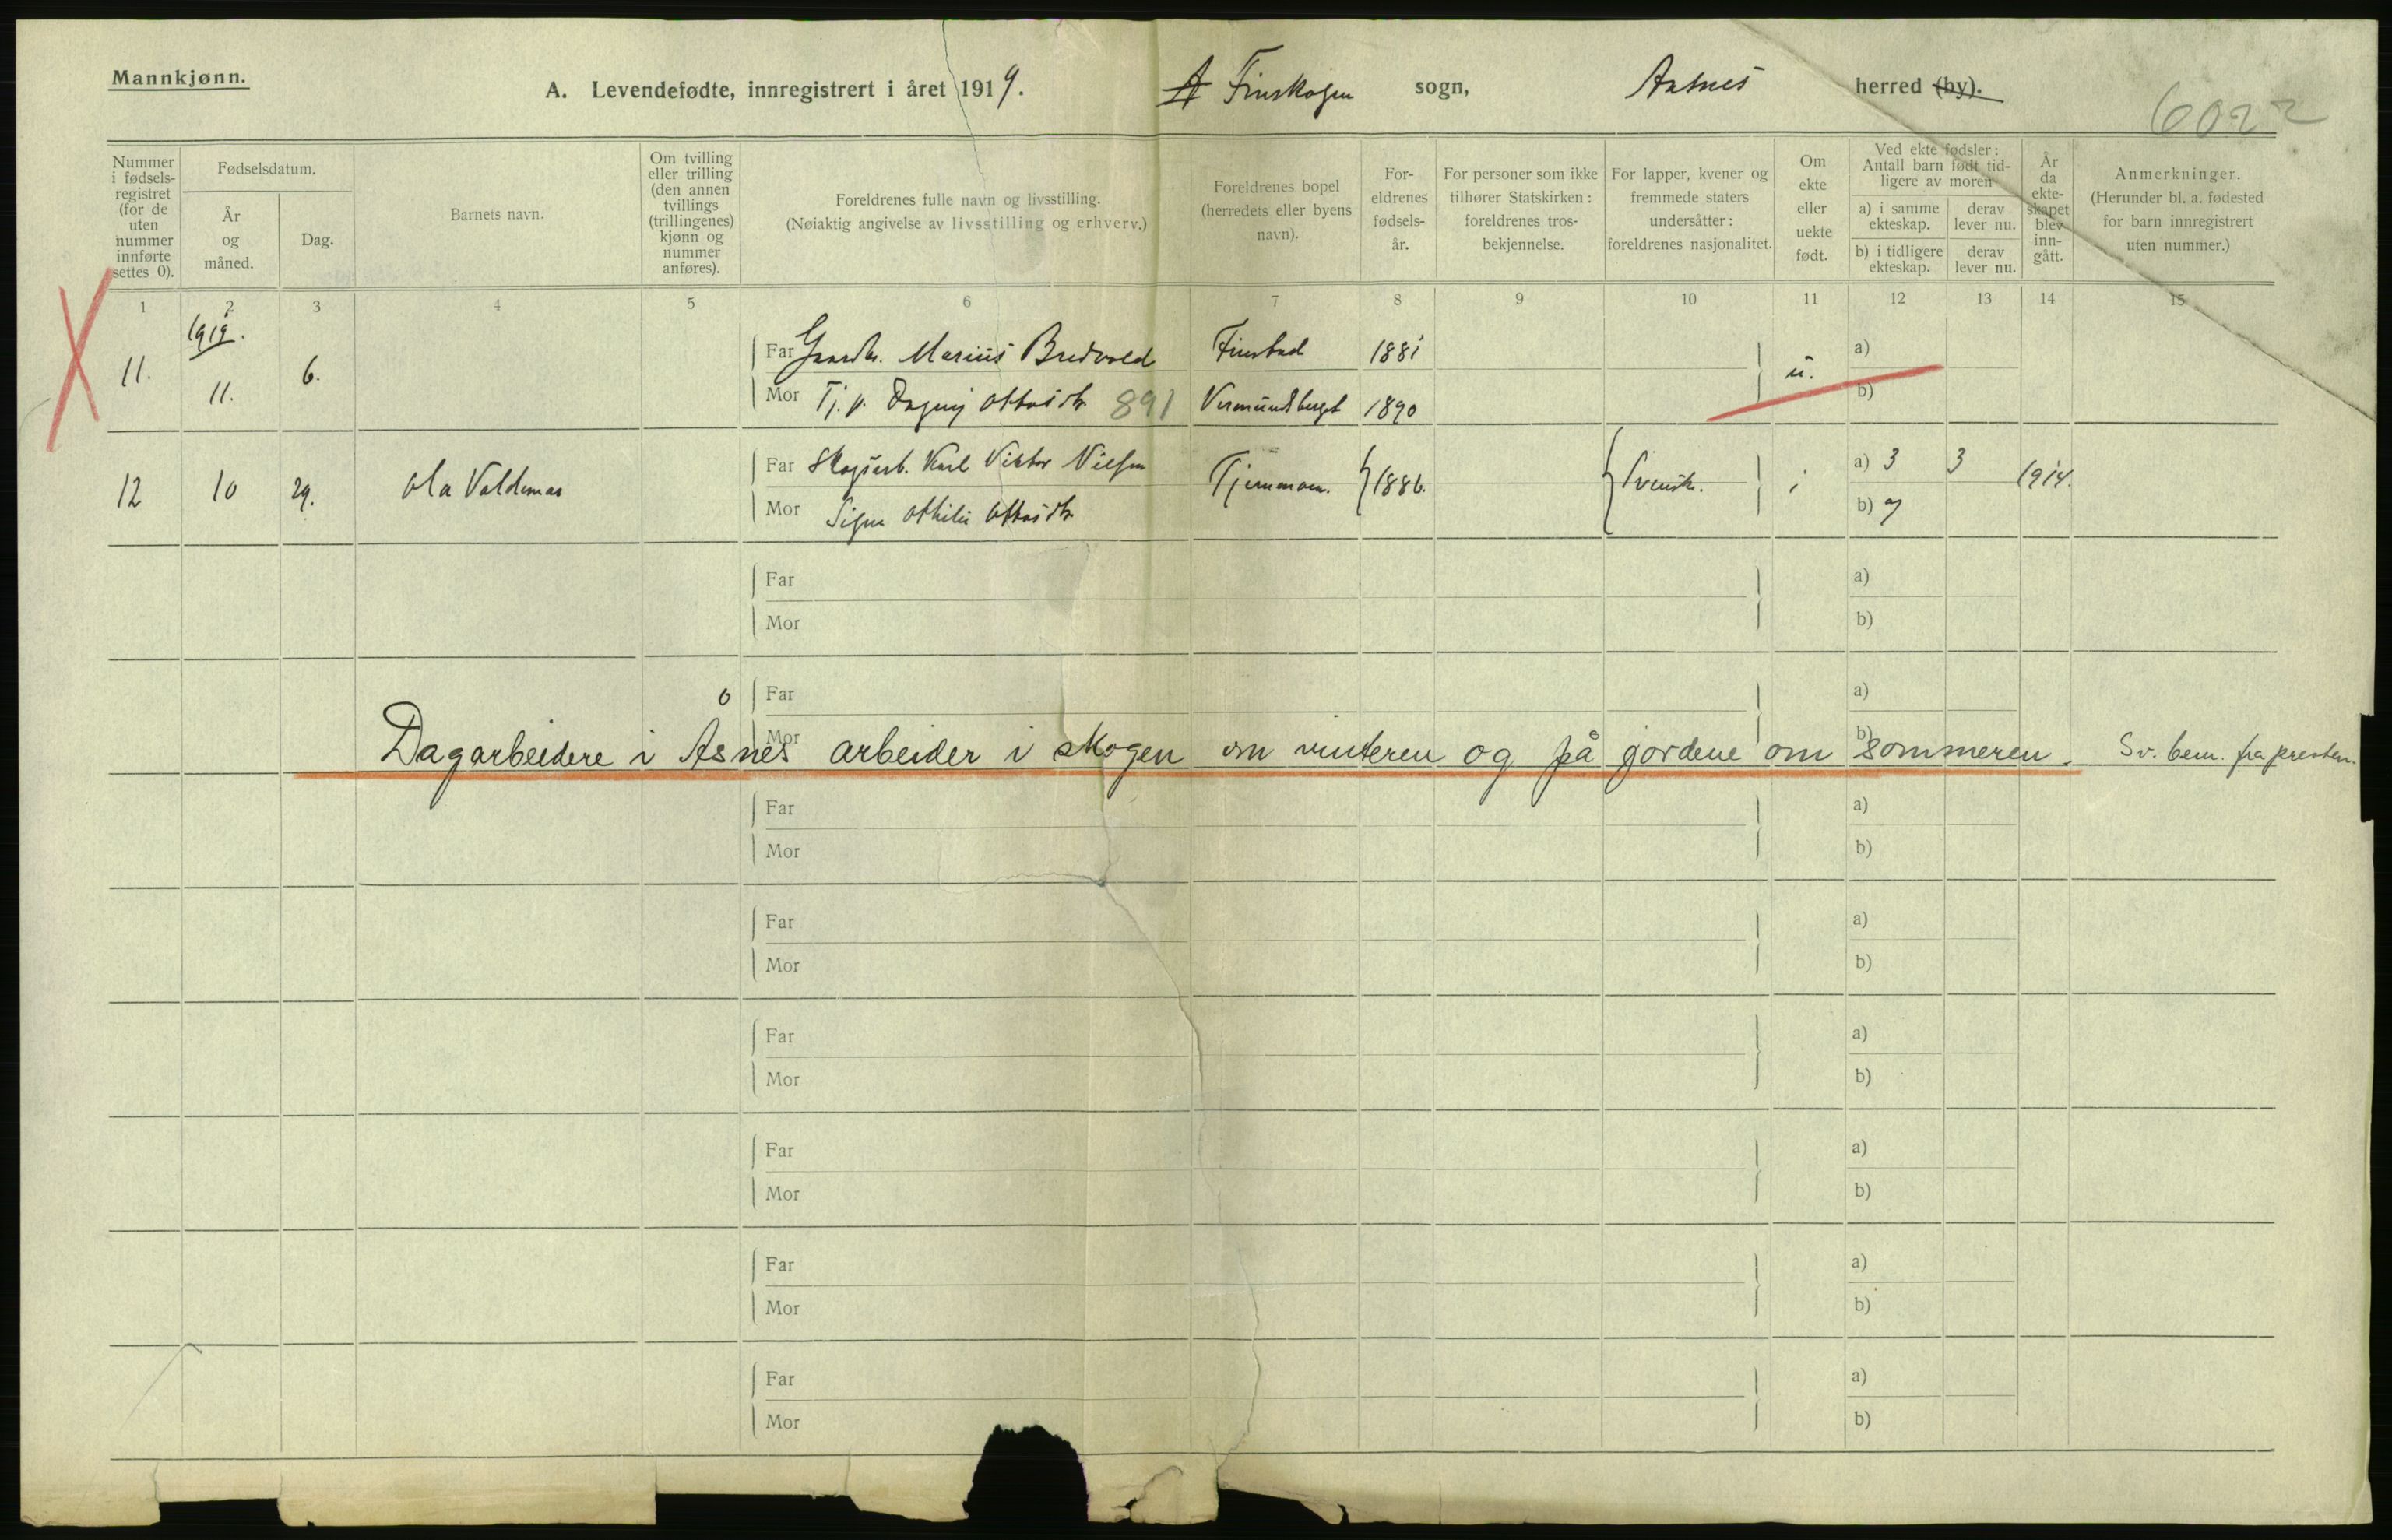 Mannkjønn.
A. Levendefødte, innregistrert i året 1919.
Finskogen sogn,
Aasnes herred (by).
6022
Nummer i fødsels-registret (for de uten nummer innførte settes 0).
Fødselsdatum.
År og måned.
Dag.
Barnets navn.
Om tvilling eller trilling (den annen tvillings (trillingenes) kjønn og nummer anføres).
Foreldrenes fulle navn og livsstilling.
(Nøiaktig angivelse av livsstilling og erhverv.)
Foreldrenes bopel (herredets eller byens navn).
For-eldrenes fødsels-år.
For personer som ikke tilhører Statskirken: foreldrenes tros-bekjennelse.
For lapper, kvener og fremmede staters undersåtter: foreldrenes nasjonalitet.
Om ekte eller uekte født.
Ved ekte fødsler: Antall barn født tid-ligere av moren
a) i samme ekteskap.
derav lever nu.
b) i tidligere ekteskap.
derav lever nu.
År da ekte-skapet blev inn-gått.
Anmerkninger.
(Herunder bl. a. fødested for barn innregistrert uten nummer.)
1 2 3 4 5 6 7 8 9 10 11 12 13 14 15
1919.
11. 11. 6.
Far Gaardbr. Marius Bredvold Finstad 1881 u. a)
Mor Tj. p. Dagny Ottosdtr 891 Vermundsberget 1890 b)
12 10 29. Ola Valdemar
Far Skogsarb. Karl Viktor Nilsen Tjernmoen. 1886. Svensk. i a) 3 3 1914.
Mor Signe Othilie Ottosdtr b)
Far a)
Mor b)
Far a)
Mor b)
Dagarbeidere i Åsnes arbeider i skogen om vinteren og på jordene om sommeren. Sv. bem. fra presten.
Far a)
Mor b)
Far a)
Mor b)
Far a)
Mor b)
Far a)
Mor b)
Far a)
Mor b)
Far a)
Mor b)